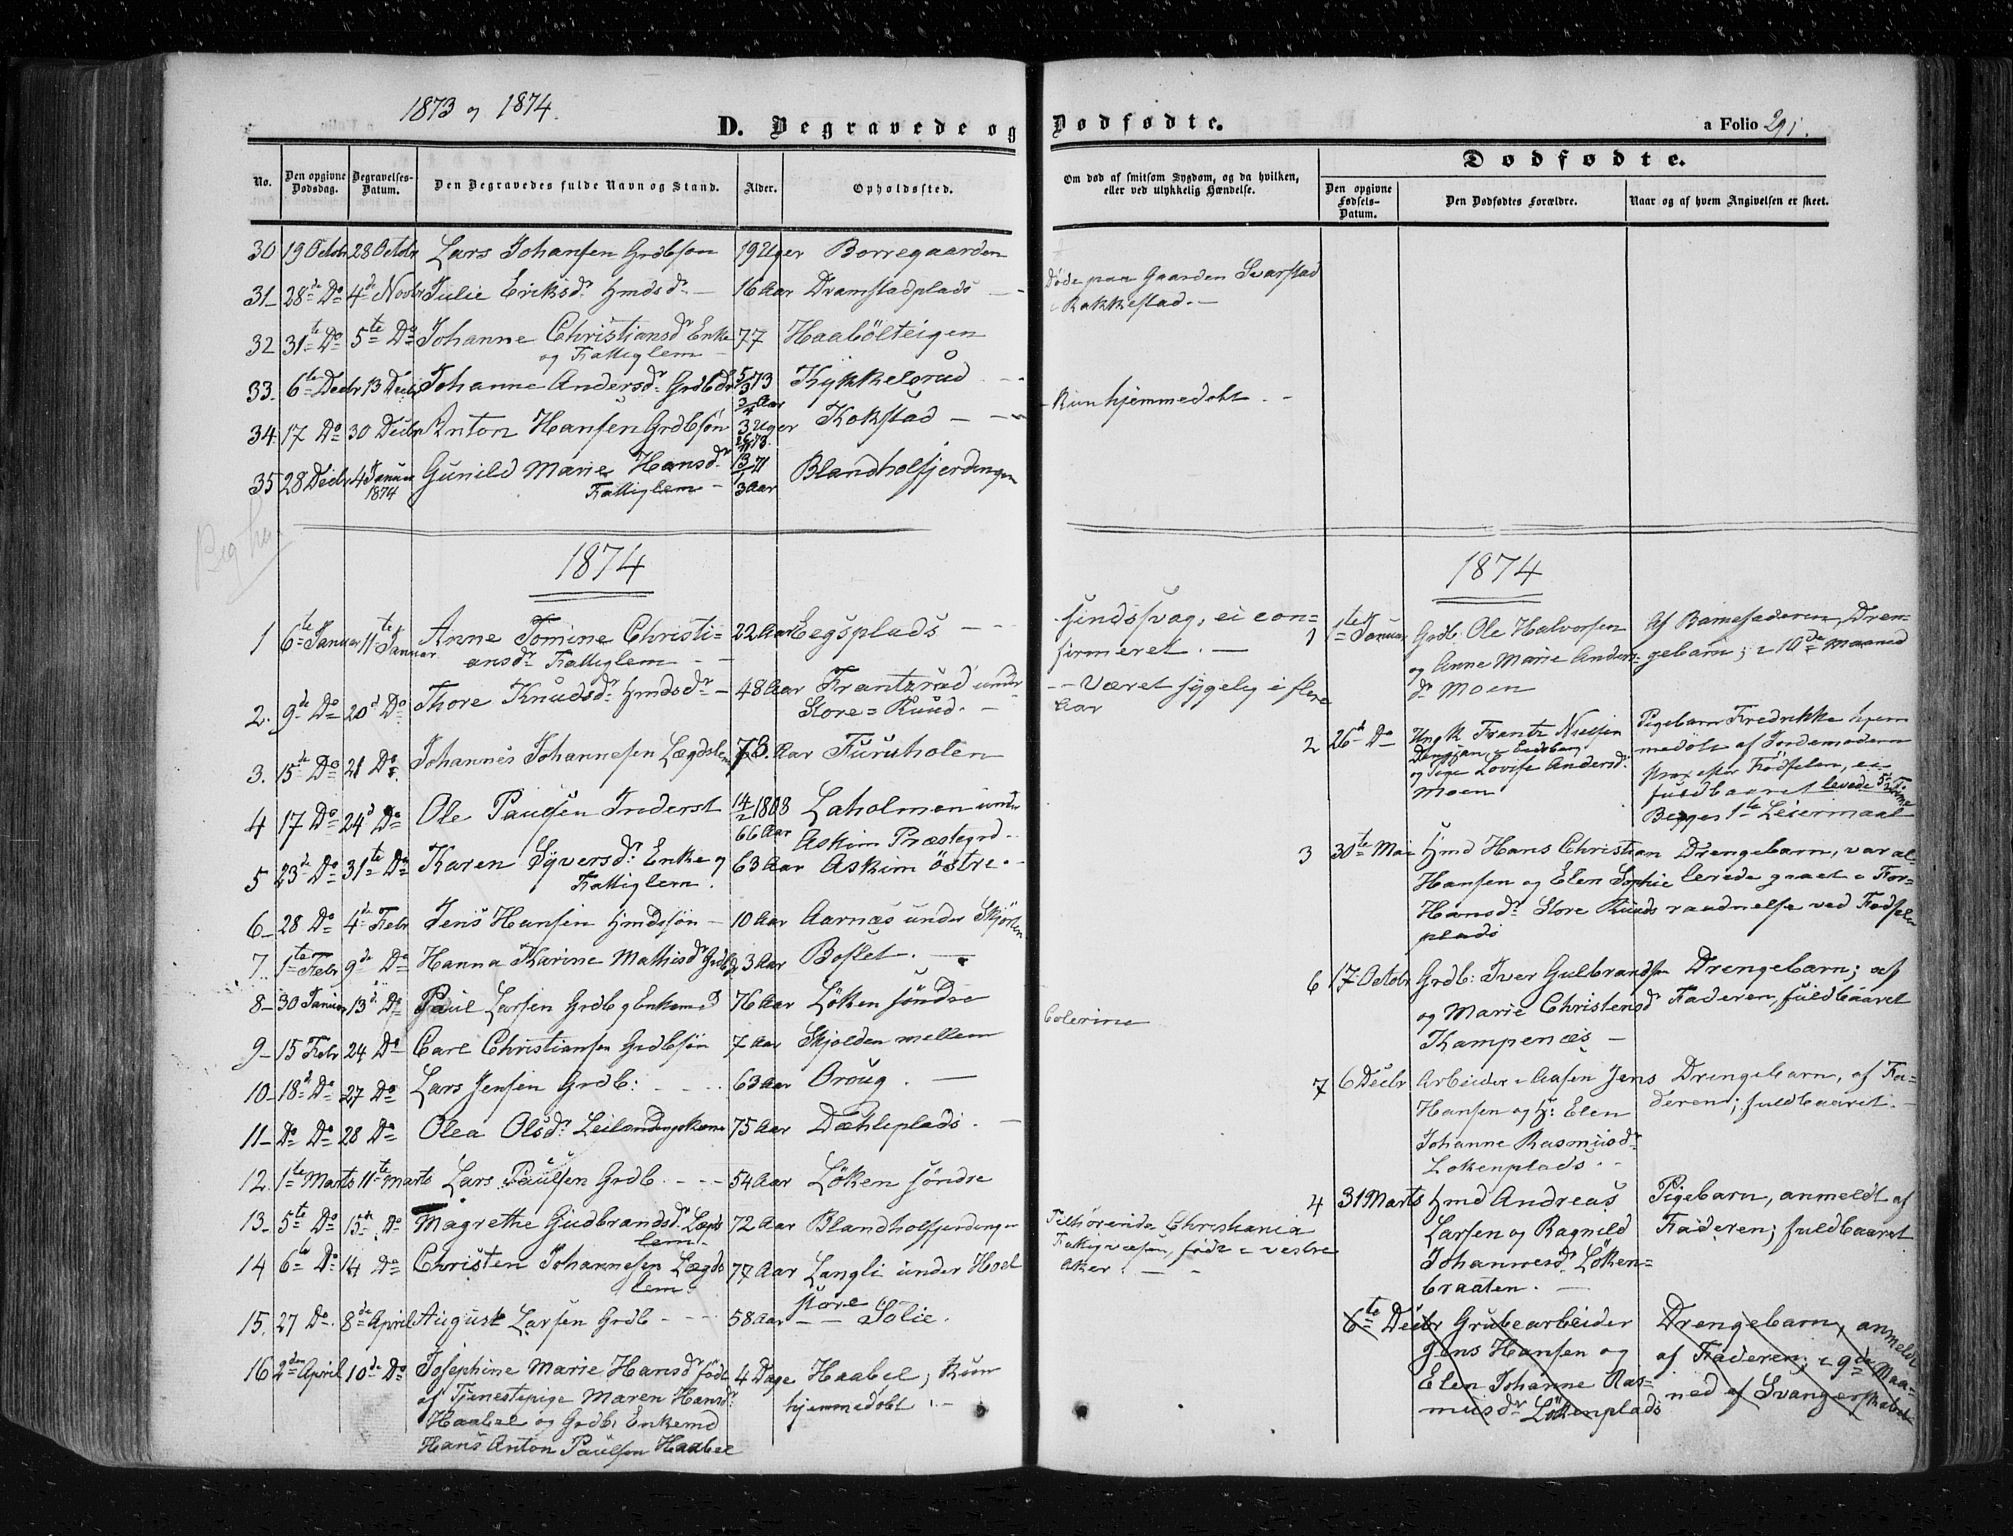 1873 og 1874.
D. Begravede og Dødfødte.
a Folio 291.
No.
Den opgivne Dødsdag.
Begravelses-Datum.
Den Begravedes fulde Navn og Stand.
Alder.
Opholdssted.
Om død af smitsom Sygdom, og da hvilken, eller ved ulykkelig Hændelse.
Dødfødte.
Den opgivne Fødsels-Datum.
Den Dødfødtes Forældre.
Naar og af hvem Angivelsen er skeet.
30 19 Octobr 28 Octobr Lars Johansen Grdbsøn 19 Uger Borregaarden
31 28de Do 4de Novbr Julie Eriksdr Hmdsdr 16 Aar Dramstadplads Døde paa Gaarden Svarstad
i Rakkestad.
32 31te Do 5te Do Johanne Christiansdr Enke 77 Haabölteigen
og Fattiglem
33. 6te Decbr 13 Decbr Johanne Andersdr Grdbdr 5/3 73 Kykkelsrud
3/4 Aar
Kun hjemmedøbt.
34 17 Do 30 Decbr Anton Hansen Grdbsøn 3 Uger Kokstad
35 28 Decbr 4 Januar 1874 Gunild Marie Hansdr 13/1 71 Blandholfjerdingen
Fattiglem 3 Aar
1874
1 6te Januar 11te Januar Anne Tomine Christi- 22 Aar Eegsplads sindssvag, ei con-
ansdr Fattiglem firmeret.
2. 9de Do 20d Do Thore Knudsdr Hmdsdr 48 Aar Frantzrud under Været sygelig i flere
Store=Ruud. Aar
3. 15de Do 21 Do Johannes Johannesen Lægdslem 73 Aar Furuholen
4 17 Do 24d Do Ole Paulsen Inderst 14/2 1808 Laholmen under
66 Aar Askim Præstegrd
5 23de Do 31te Do Karen Syversdr Enke og 63 Aar Askim östre
Fattiglem.
6 28 Do 4de Febr Jens Hansen Hmdssøn 10 Aar Aarnæs under Skjörten
7. 1te Febr 9de Do Hanna Karine Mathisdr Grdb 3 Aar Boslet.
8 30 Januar 13d Do Paul Larsen Grdb og Enkemd 76 Aar Löken söndre
9 15 Febr 24 Do Carl Christiansen Grdbsøn 7 Aar Skjolden mellem Colerine
10 18d Do 27 Do Lars Jensen Grdb: 63 Aar Oroug.
11 Do Do 28 Do Olea Olsdr Leilændingskone 75 Aar Dæhleplads.
12. 1te Marts 11te Marts Lars Paulsen Grdb. 54 Aar Löken söndre
13 5te Do 15de Do Magrethe Gudbrandsdr Lægds 72 Aar Blandholfjerdingen Tilhørende Christiania
lem. Fattigvæsen, født i vestre
Aker.
14 6te Do 14 Do Christen Johannesen Lægds 77 Aar Langli under Hoel
lem. store
15. 27 Do. 8de April August Larsen Grdb 58 Aar Solie.
16 2den April 10de Do Josephine Marie Hansdr født 4 Dage Haabel; Kun
af Tjenestepige Maren Hansdr hjemmedøbt.
Haabel og Grdbr Enkemd
Hans Anton Paulsen Haabel
1874
1 1te Januar Grdb. Ole Halvorsen Af Barnefaderen, Dren-
og Anne Marie Anders- gebarn; i 10de Maaned
dr Moen
2 26d Do Ungk Frantz Nielsen Pigebarn Fredrikke hjem
i Eidsberg medøbt af Jordemoderen
og Pige Lovise Andersdr. strax efter Fødselen, ei
Moen fuldbaaret levede
Begges 1te Leiermaal
3 30te Mai Hmd Hans Christian Drengebarn, var al-
Hansen og Elen Sophie lerede gaaet i For-
Hansdr Store Ruuds raadnelse ved Fødselen
plads
6 17 Octobr Grdb: Iver Gulbrandsen Drengebarn; af
og Marie Christensdr Faderen, fuldbaaret
Kampenæs
7 6 Decbr Arbeider i Aasen Jens Drengebarn, af Fa-
Hansen og H: Elen deren; fuldbaaret.
Johanne Rasmusdr
Lökenplads.
4 31 Marts Hmd Andreas Pigebarn, anmeldt af
Larsen og Ragnild Faderen; fuldbaaret
Johannesdr Löken-
braaten.
6te Decbr Grubearbeider Drengebarn, anmeldt
Jens Hansen og af Faderen; i 9de Maa-
Elen Johanne Ras- ned af Svangerskabet
musdr Lökenplads